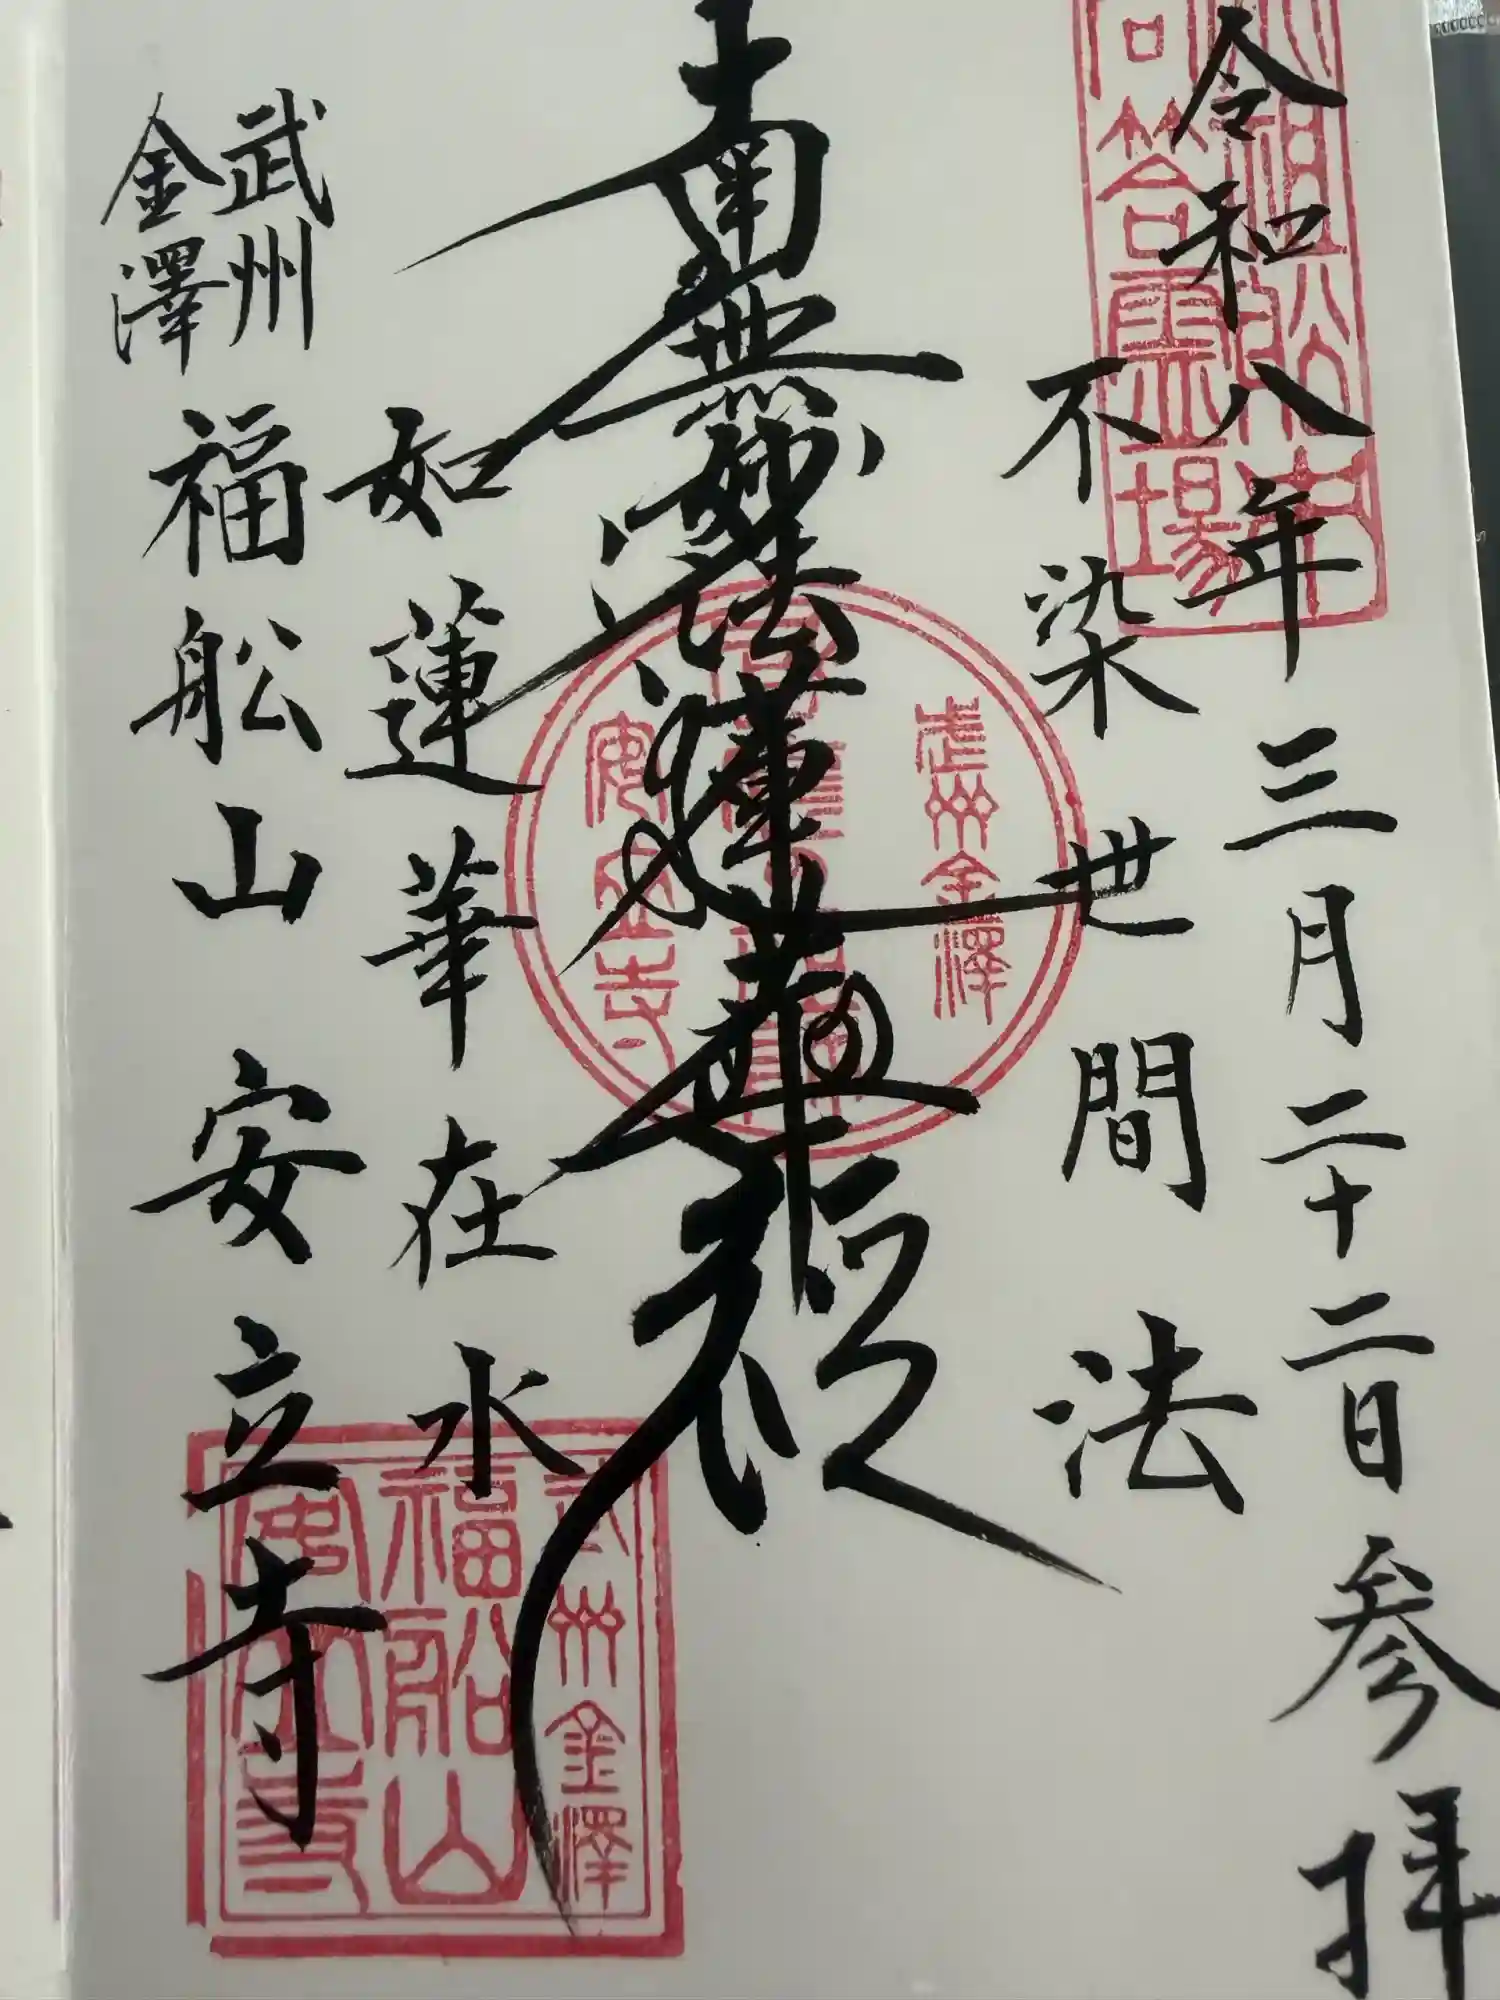 令和八年三月二十二日参拝
不染世間法
南無妙法蓮華経
如蓮華在水
武州
金澤
福舩山安立寺
問答霊場
武州金澤
安立寺
武州金澤
福舩山
安立寺